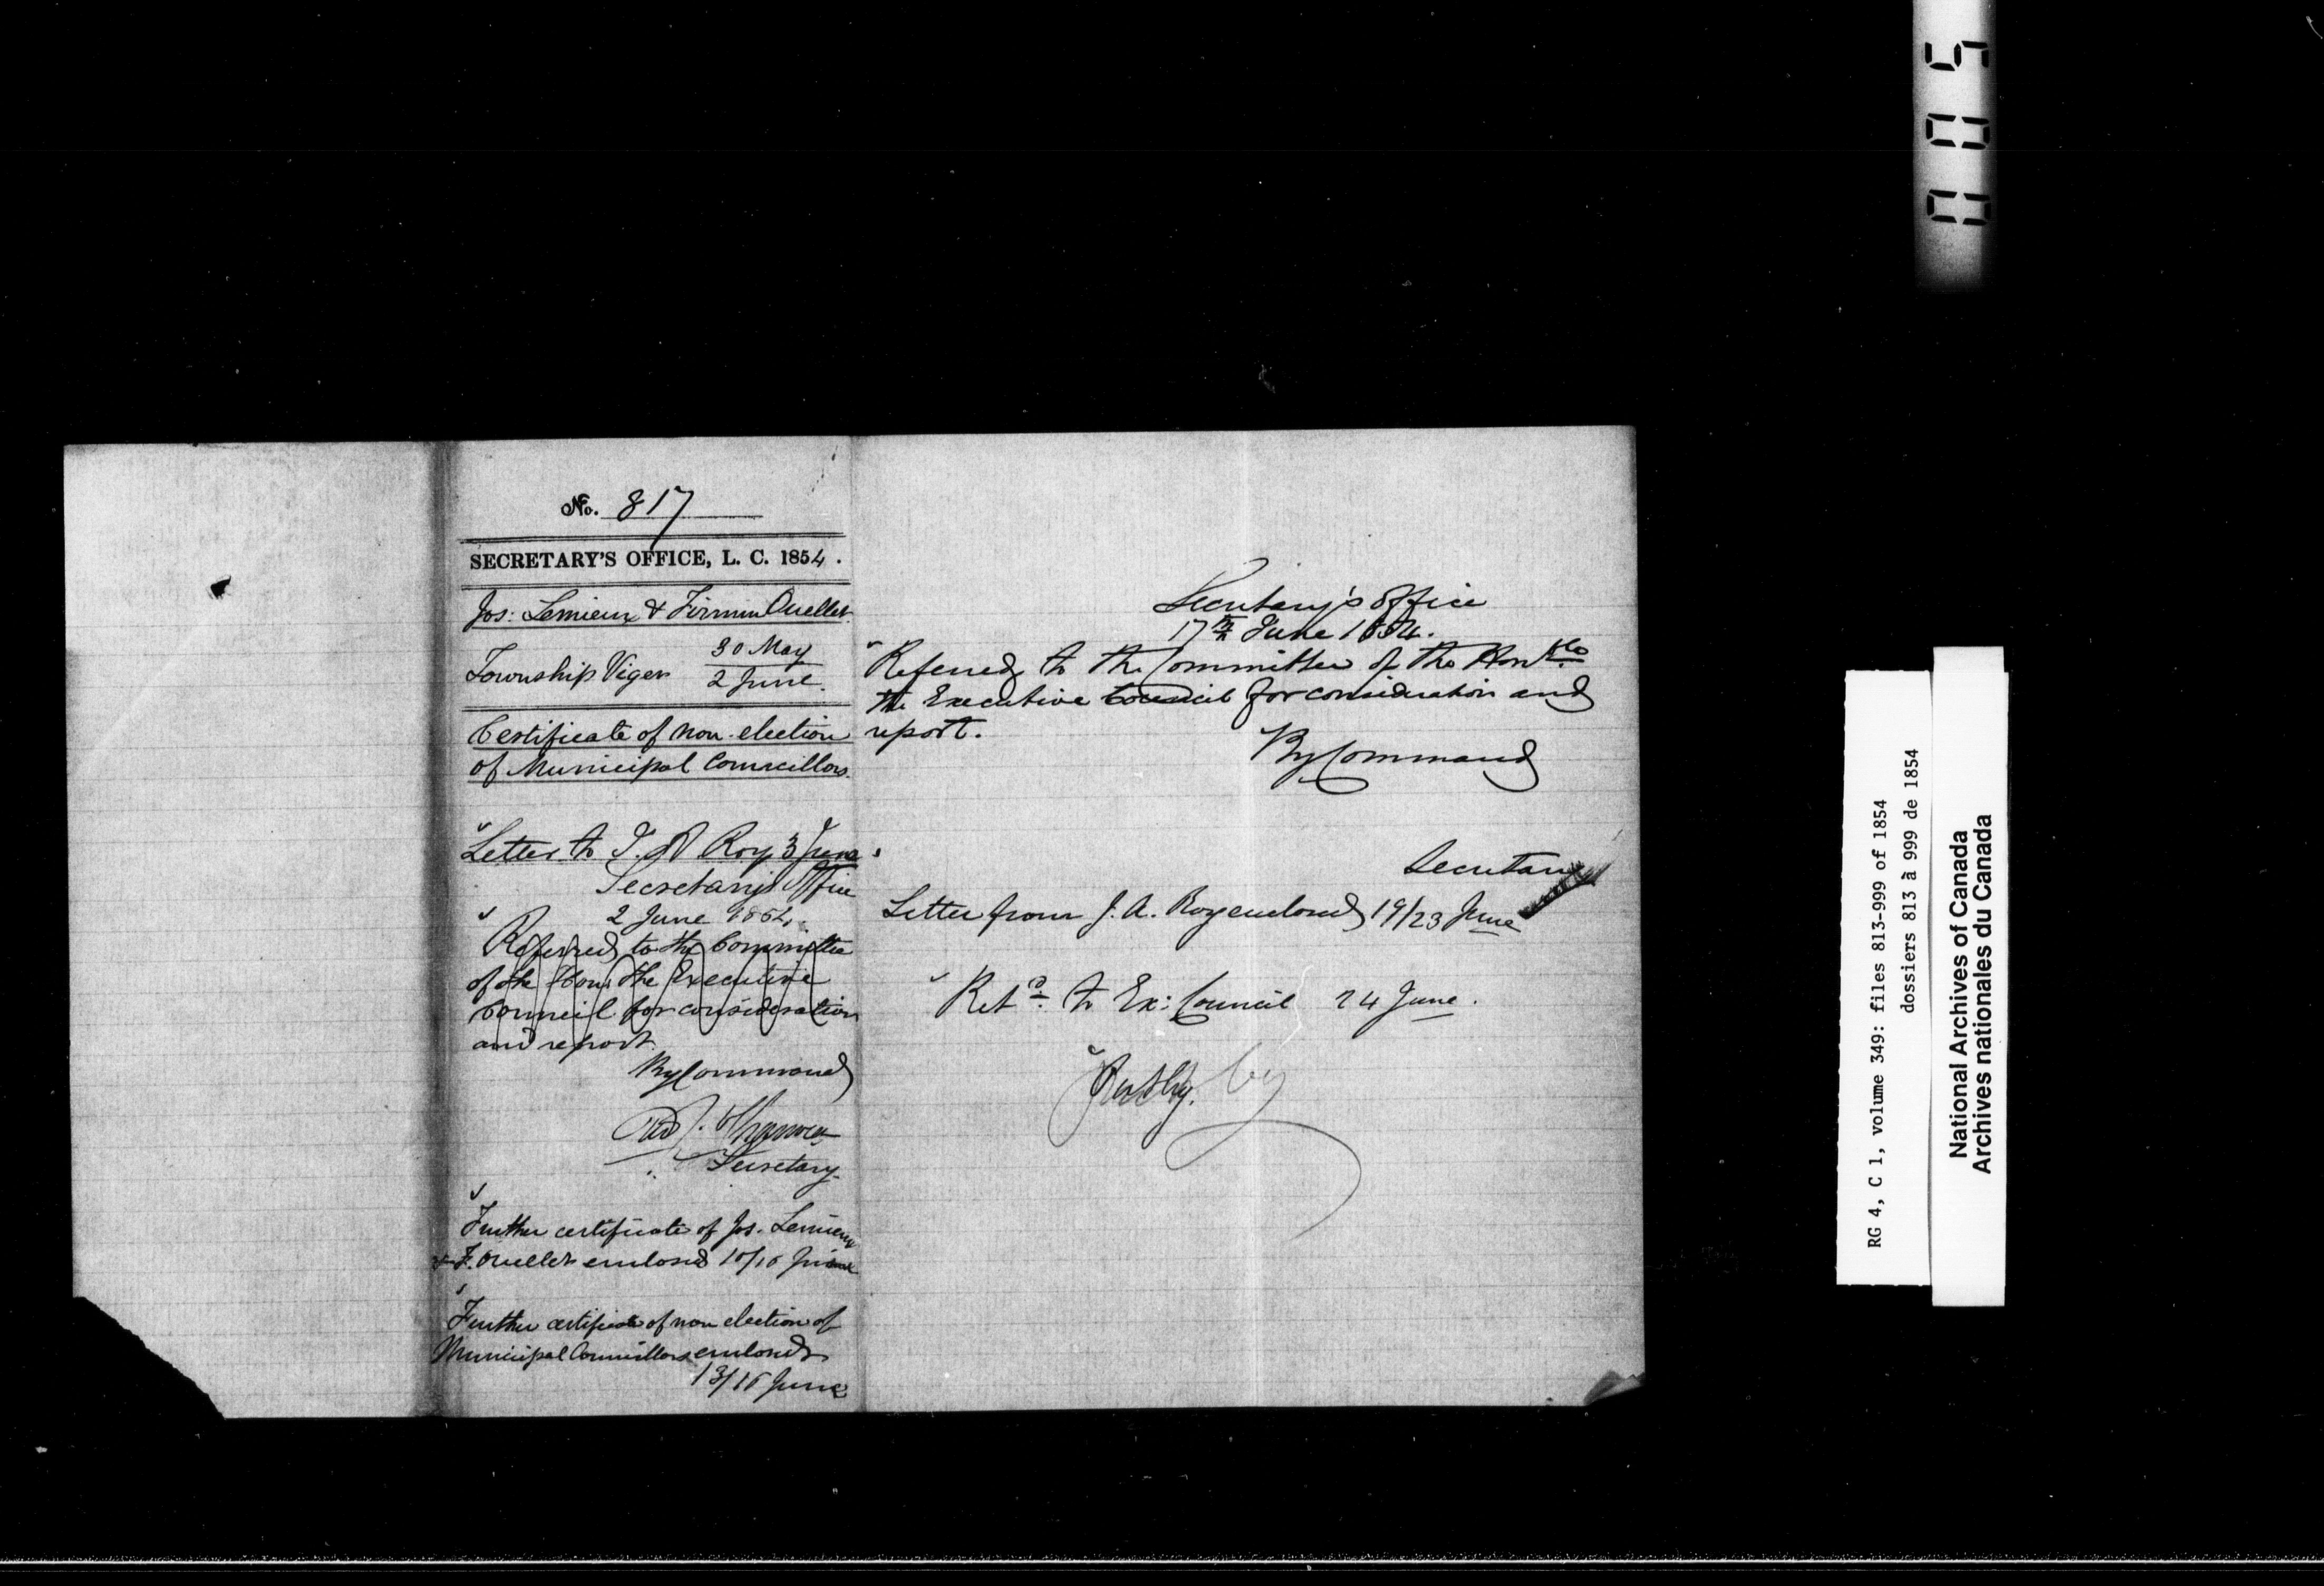 No. 817
SECRETARY'S OFFICE, L. C. 1854.
Jos: Lemieux & Firmin Ouellet
Township Viger 30 May
2 June.
Certificate of non-election
of Municipal Councillors
Letter to J. A Roy 3 June
Secretary's Office
2 June 1854.
Referred to the Committee
of the Hon. the Executive
Council for consideration
and report.
By Command
Secretary
Further certificate of Jos. Lemieux
& F. Ouellet enclosed 10/16 June
Further certificate of non election of
Municipal Councillors enclosed
13/16 June
Secretary's Office
17th June 1854.
Referred to the Committee of the Honble
the Executive Council for consideration and
report.
By Command
Secretary
Letter from J. A. Roy enclosed 19/23 June
Retd. to Ex: Council 24 June.
by
000 5
RG 4, C 1, volume 349: files 813-999 of 1854
dossiers 813 à 999 de 1854
National Archives of Canada
Archives nationales du Canada